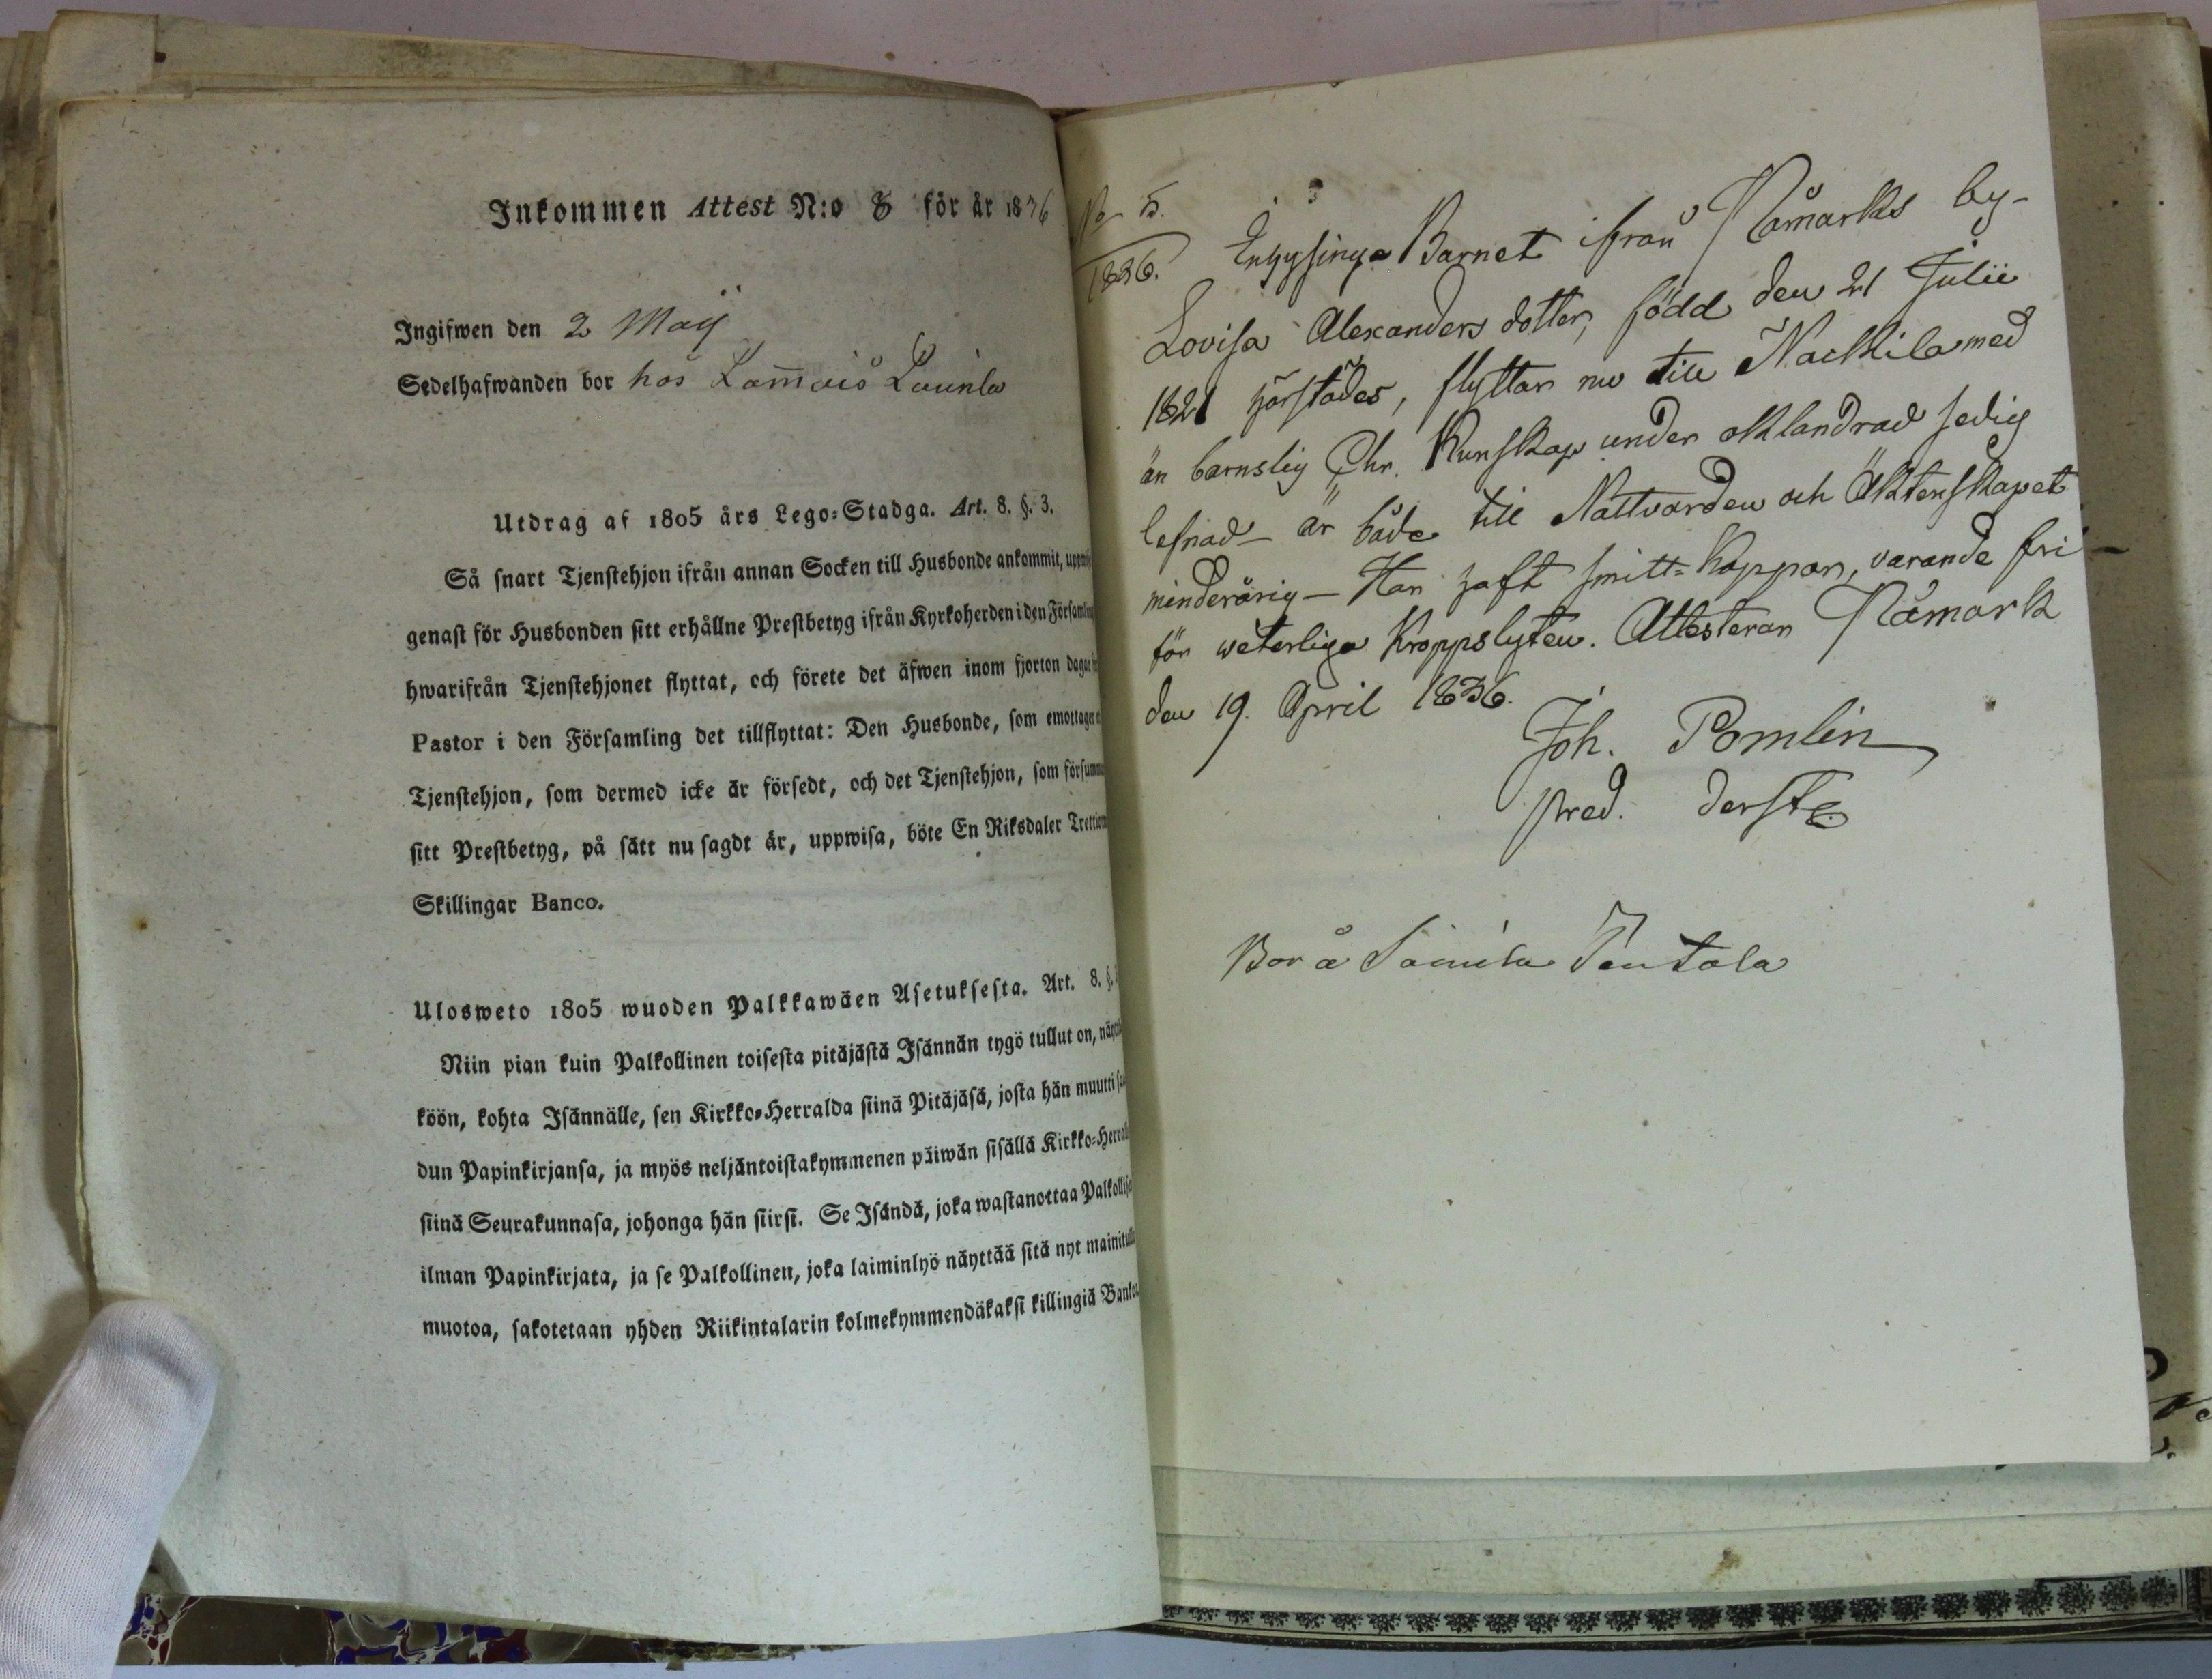 Inkommen Attest N:o 8 för år 1836
Ingifwen den 2 Maij
Sedelhafwanden bor hos
Utdrag af 1805 års Lego-Stadga. Art. 8. §. 3.
Så snart Tjenstehjon ifrån annan Socken till Husbonde ankommit,
genast för Husbonden sitt erhållne Prestbetyg ifrån Kyrkoherden i den
hwarifrån Tjenstehjonet flyttat, och förete det äfwen inom fjorton
Pastor i den Församling det tillflyttat: Den Husbonde, som
Tjenstehjon, som dermed icke är försedt, och det Tjenstehjon, som
sitt Prestbetyg, på sätt nu sagdt är, uppwisa, böte En Riksdaler
Skillingar Banco.
Ulosweto 1805 wuoden Palkkawäen Asetuksesta. Art. 8. §.
Niin pian kuin Palkollinen toisesta pitäjästä Isännän tygö tullut on,
köön, kohta Isännälle, sen Kirkko-Herralda siinä Pitäjäsä, josta hän muutti
dun Papinkirjansa, ja myös neljäntoistakymmenen päiwän sisällä
siinä Seurakunnasa, johonga hän siirsi. Se Isändä, joka wastanottaa
ilman Papinkirjata, ja se Palkollinen, joka laiminlyö näyttää sitä nyt
muotoa, sakotetaan yhden Riikintalarin kolmekymmendäkaksi killingiä
No 5.
1836.
Barnet ifrån Påmarks by-
Lovisa Alexanders dotter, född den 21 Julii
1821 härstädes, flyttar nu till Nackila med
än barnslig Chr. Kunskap under oklandrad sedig
lefnad - är både till Nattvarden och Äktenskapet
minderårig - Har haft smitt-koppor, varande fri
för weterliga Kroppslyten. Attesterar Påmark
den 19. April 1836.
Joh. Pomlin
pred. derst.
Bor å